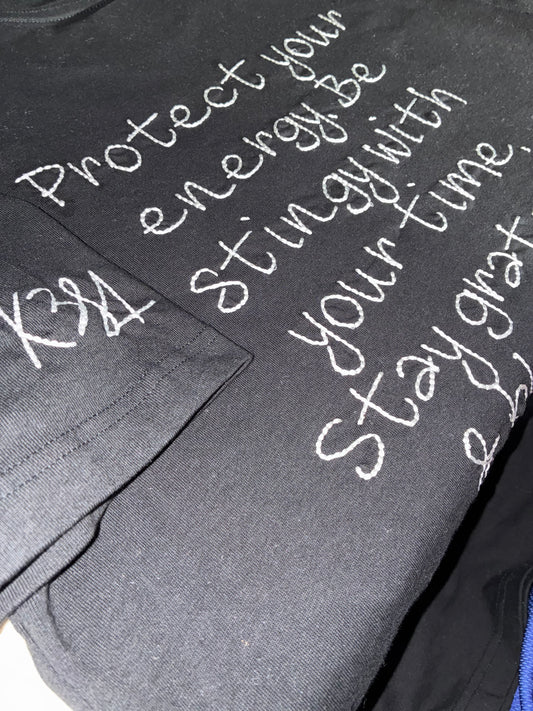 Protect your
energy. Be
Stingy with
your time.
Stay